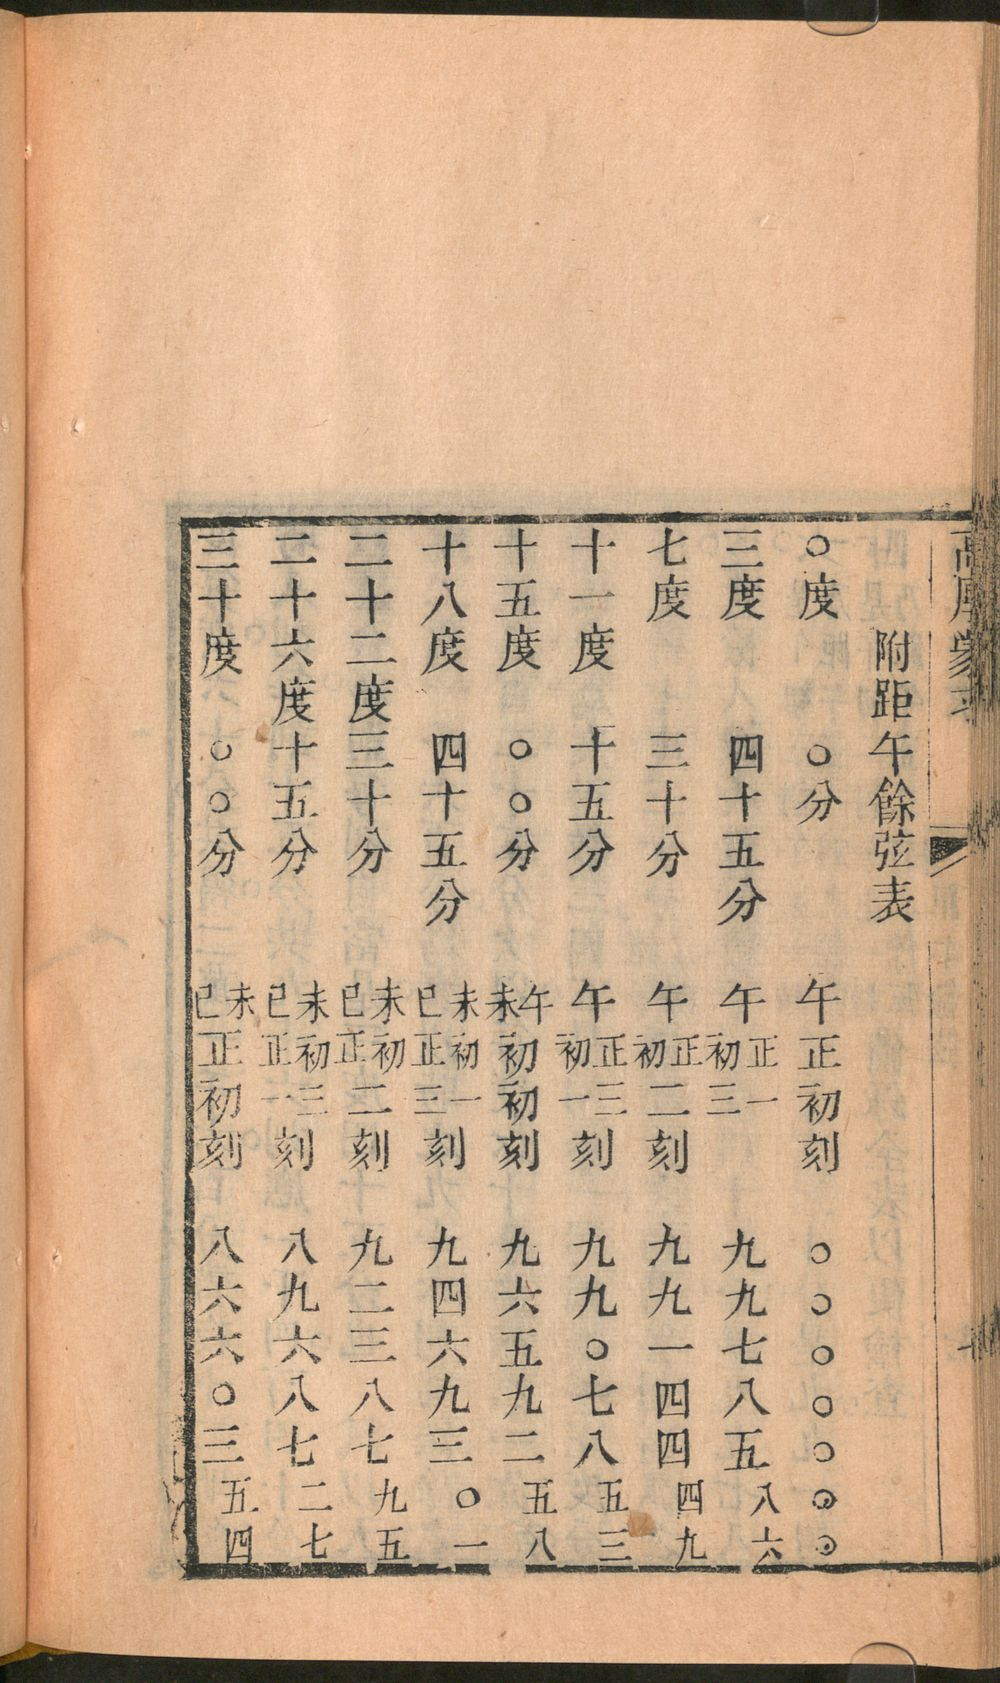 高厚蒙求
附距午餘弦表
〇度 〇分 午正初刻 〇〇〇〇〇〇〇
三度 四十五分 午正一初三 九九七八五八六
七度 三十分 午正初二刻 九九一四四四九
十一度 十五分 午正三初一刻 九九〇七八五三
十五度 〇〇分 午未初初刻 九六五九二五八
十八度 四十五分 未初一巳正三刻 九四六九三〇一
二十二度三十分 未初巳正二刻 九二三八七九五
二十六度十五分 未初三巳正一刻 八九六八七二七
三十度 〇〇分 未巳正初刻 八六六〇三五四